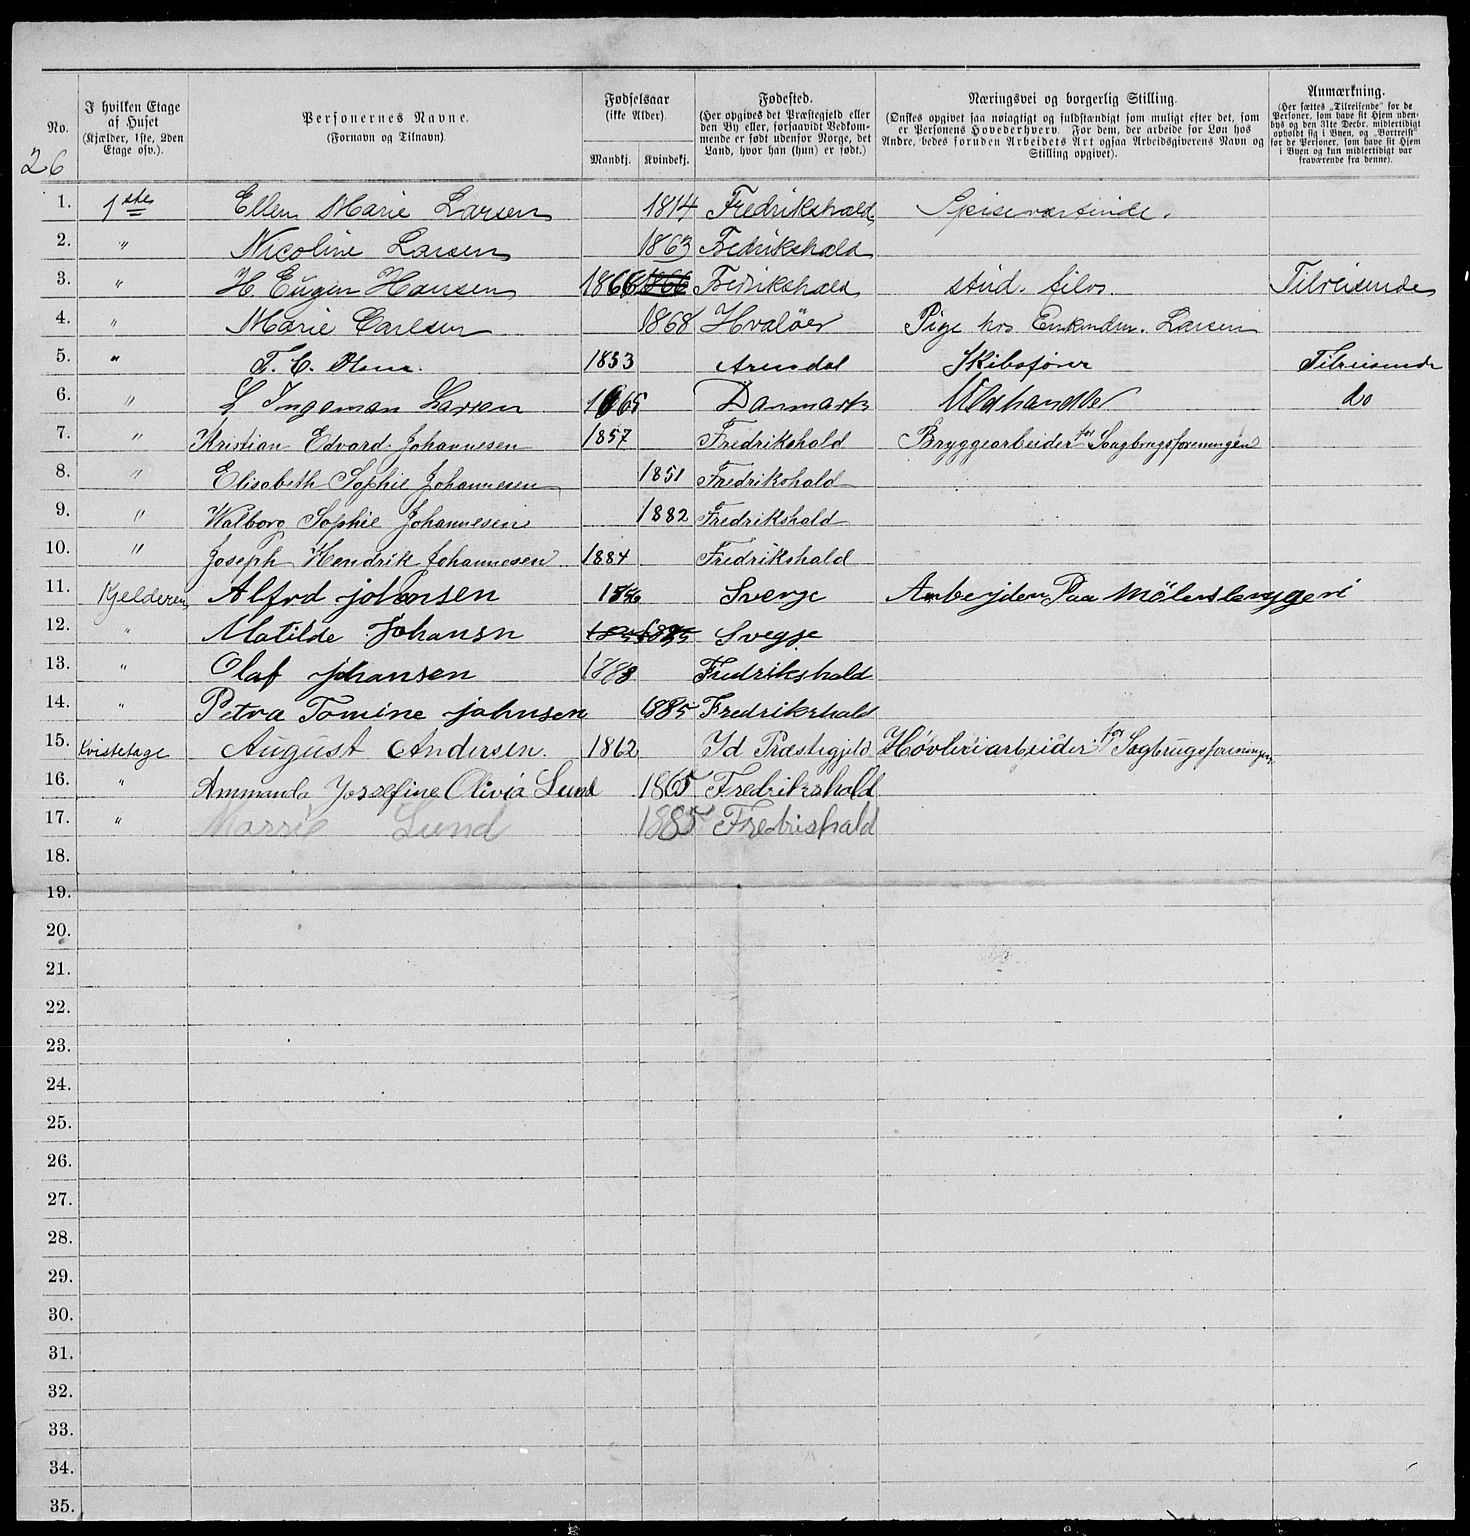 No.
I hvilken Etage
af Huset
(Kjælder, 1ste, 2den
Etage osv.).
Personernes Navne.
(Fornavn og Tilnavn).
Fødselsaar
(ikke Alder).
Mandkj. Kvindekj.
Fødested.
(Her opgives det Præstegjeld eller
den By eller, forsaavidt Vedkom-
mende er født udenfor Norge, det
Land, hvor han (hun) er født.)
Næringsvei og borgerlig Stilling.
(Ønskes opgivet saa nøiagtigt og fuldstændigt som muligt efter det, som
er Personens Hovederhverv. For dem, der arbeide for Løn hos
Andre, bedes foruden Arbeidets Art ogsaa Arbeidsgiverens Navn og
Stilling opgivet).
Anmærkning.
(Her sættes „Tilreisende" for de
Personer, som have sit Hjem uden-
bys og den 31te Decbr. midlertidigt
opholdt sig i Byen, og „Bortreist"
for de Personer, som have sit Hjem
i Byen og kun midlertidigt var
fraværende fra denne).
26
1. 1ste Ellen Marie Larsen 1814 Fredrikshald Spiseværtinde.
2. " Nicoline Larsen 1863 Fredrikshald
3. " H. Eugen Hansen 1866 1866 Fredrikshald stud. filos. Tilreisende
4. " Marie Carlsen 1868 Hvaløer Pige hos Enkemdm. Larsen
5. " T. C. Olsen. 1853 Arendal Skibsfører Tilreisende
6. " L Ingeman Larsen 1865 Danmark Uldhandler do
7. " Kristian Edvard Johannesen 1857 Fredrikshald Bryggearbeider for Saugbrugsforeningen
8. " Elisabeth Sophie Johannesen 1851 Fredrikshald
9. " Walborg Sophie Johannesen 1882 Fredrikshald
10. " Joseph Hendrik Johannesen 1884 Fredrikshald
11. Kjelderen Alfrd johensen Sverge Arbejder Paa Mølersbryggeri
12. " Matilde Johansn Svegje
13. " Olaf johansen 1883 Fredrikshald
14. " Petra Tomine johnsen 1885 Fredrikshald
15. Kvistetage August Andersen. 1862 Id Præstegjeld Høvleriarbeider for Sagbrugsforeningen
16. " Ammanda Jossefine Olivia Lund 1865 Fredrikshald
17. " Marrie Lund 1885 Fredrishald
18.
19.
20.
21.
22.
23.
24.
25.
26.
27.
28.
29.
30.
31.
32.
33.
34.
35.